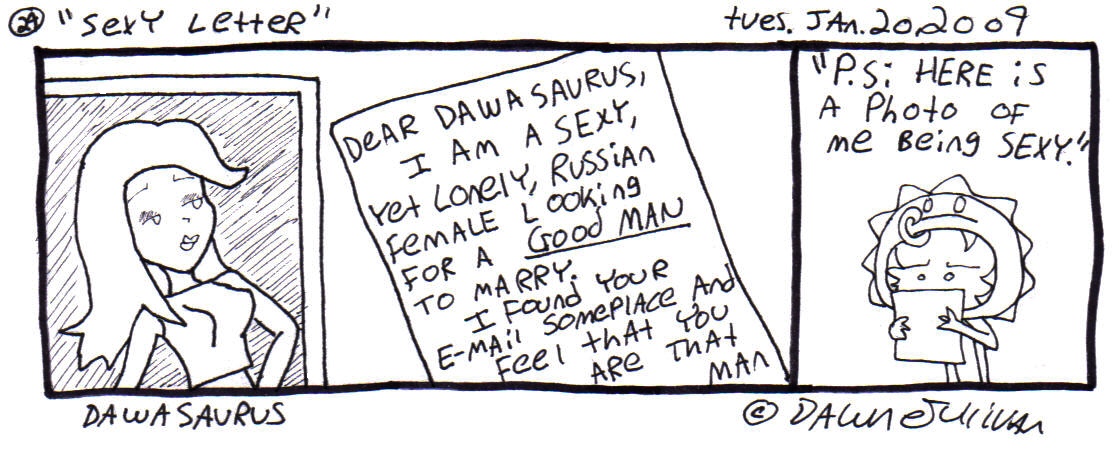 24 "SEXY LETTER"
TUES. JAN. 20, 2009
DEAR DAWASAURUS,
I AM A SEXY,
YET LONELY, RUSSIAN
FEMALE LOOKING
FOR A GOOD MAN
TO MARRY.
I FOUND YOUR
E-MAIL SOMEPLACE AND
FEEL THAT YOU
ARE THAT
MAN
"P.S: HERE IS
A PHOTO OF
ME BEING SEXY."
DAWASAURUS
©